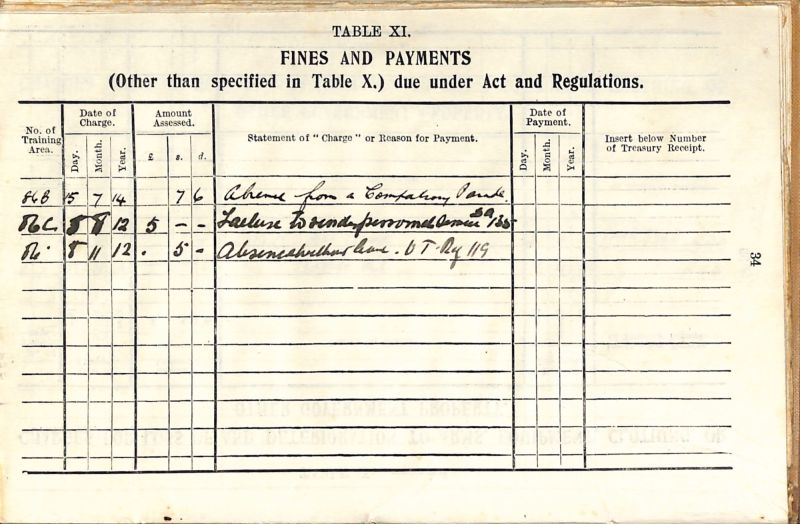 TABLE XI.
FINES AND PAYMENTS
(Other than specified in Table X.) due under Act and Regulations.
No. of Training Area. Date of Charge. Day. Month. Year. Amount Assessed. £ s. d. Statement of " Charge " or Reason for Payment. Date of Payment. Day. Month. Year. Insert below Number of Treasury Receipt.
86B 15 7 14 7 6 Absence from a Compulsory Parade.
8 8 12 5 - - Failure to render personal Service 135
8 11 12 . 5 - Absence without leave. U T. Reg 119
34